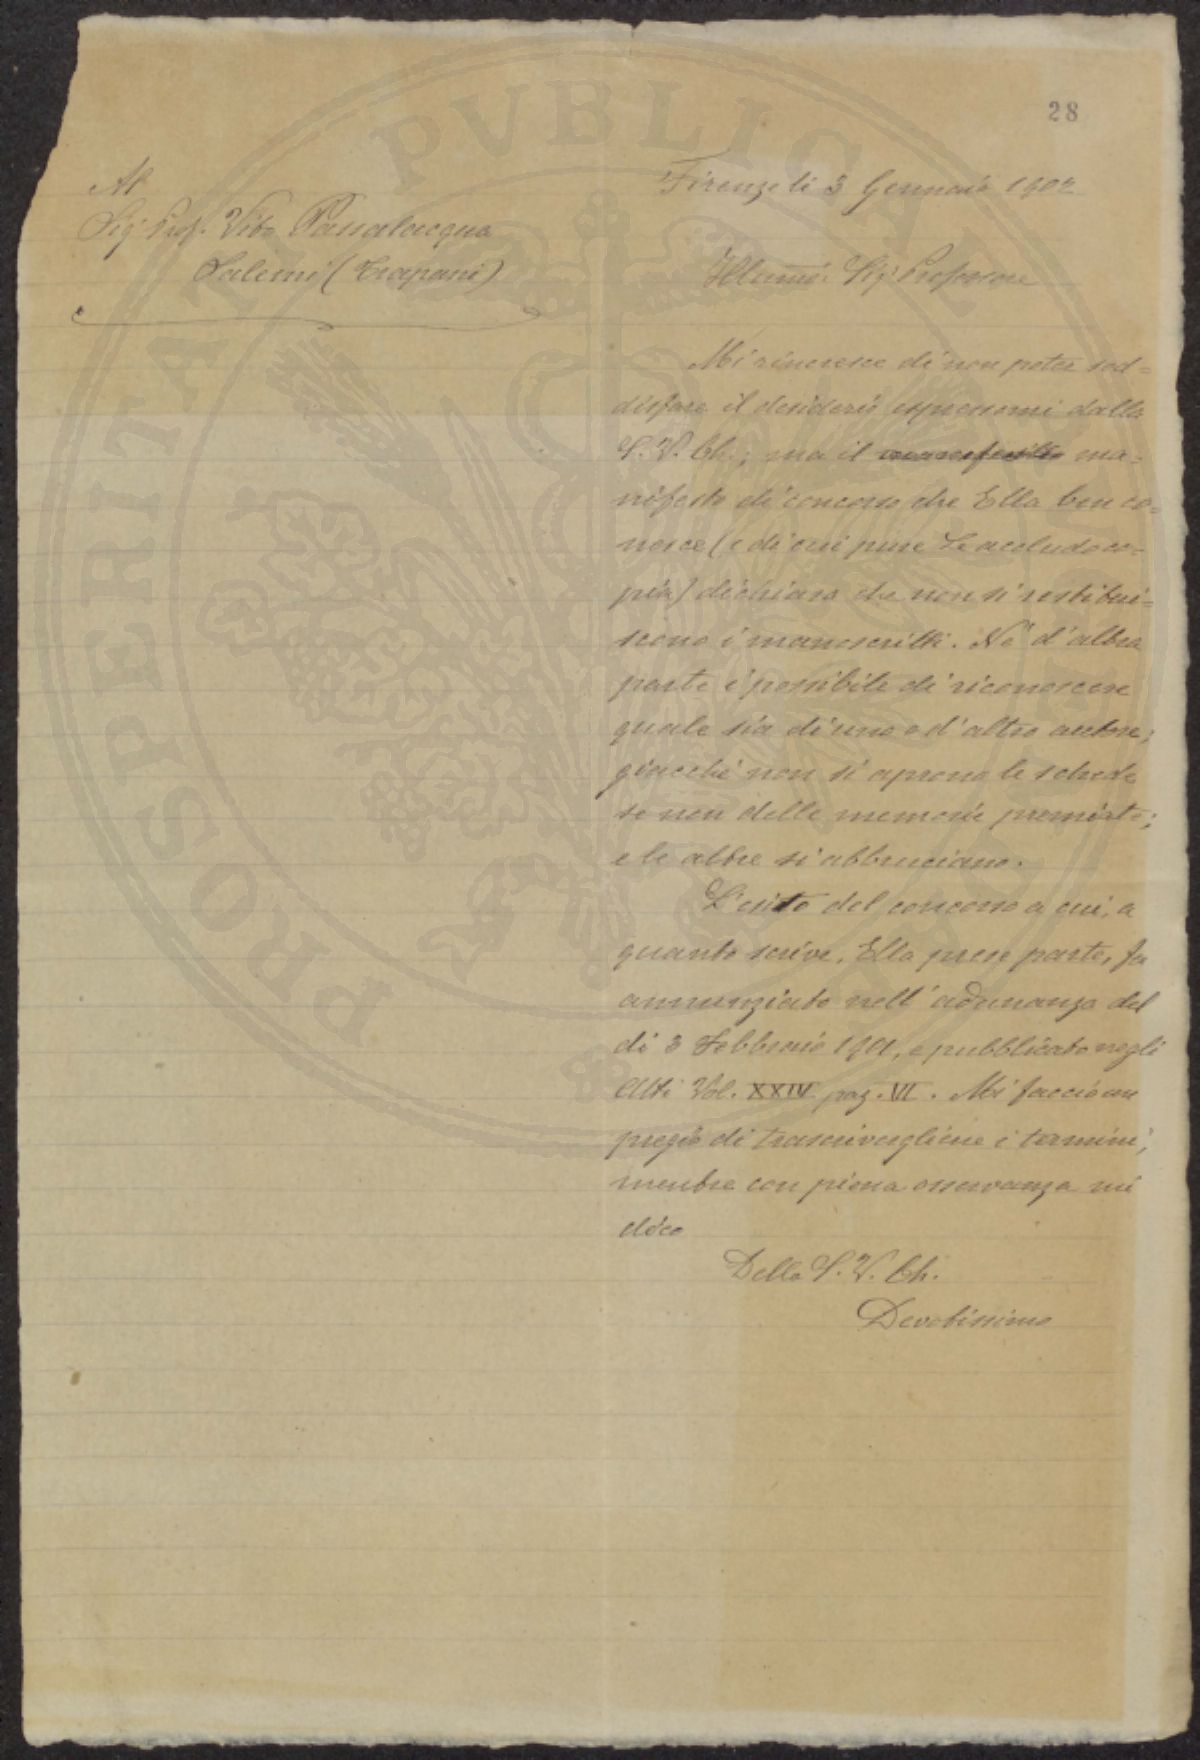 28
Al
Sig. Prof. Vito Passalacqua
Salemi (Trapani)
Firenze li 3 Gennaio 1902
Illumo: Sig. Professore
Mi rincresce di non poter sod=
disfare il desiderio espressomi dalla
S. V. Ch.; ma il manifesto ma=
nifesto di concorso che Ella ben co=
nosce (e di cui pure Le accludo co=
pia) dichiara che non si restitui=
scono i manoscritti. Nè d'altra
parte è possibile di riconoscere
quale sia di uno o d'altro autore;
giacchè non si aprono le schede
se non delle memorie premiate;
e le altre si abbruciano.
L'esito del concorso a cui, a
quanto scrive, Ella prese parte, fu
annunziato nell'adunanza del
dì 3 Febbraio 1901, e pubblicato negli
Atti Vol. XXIV pag. VI. Mi faccio un
pregio di trascrivergliene i termini;
mentre con piena osservanza mi
dico
Della S. V. Ch.
Devotissimo
PROSPERITATI PVBLICAE